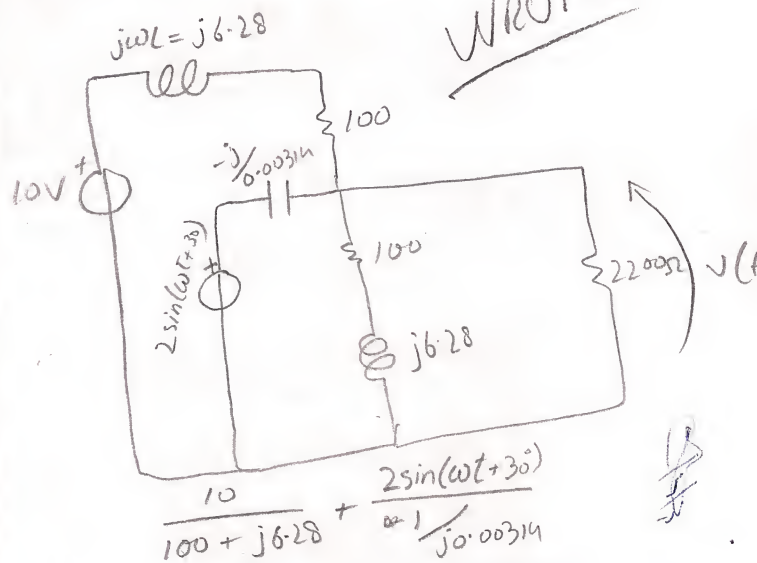 jωL = j6.28
100
-j/0.00314
10V
+
2sin(ωt+30)
+
100
2200Ω
j6.28
10/100 + j6.28 + 2sin(ωt+30°)/1/j0.00314